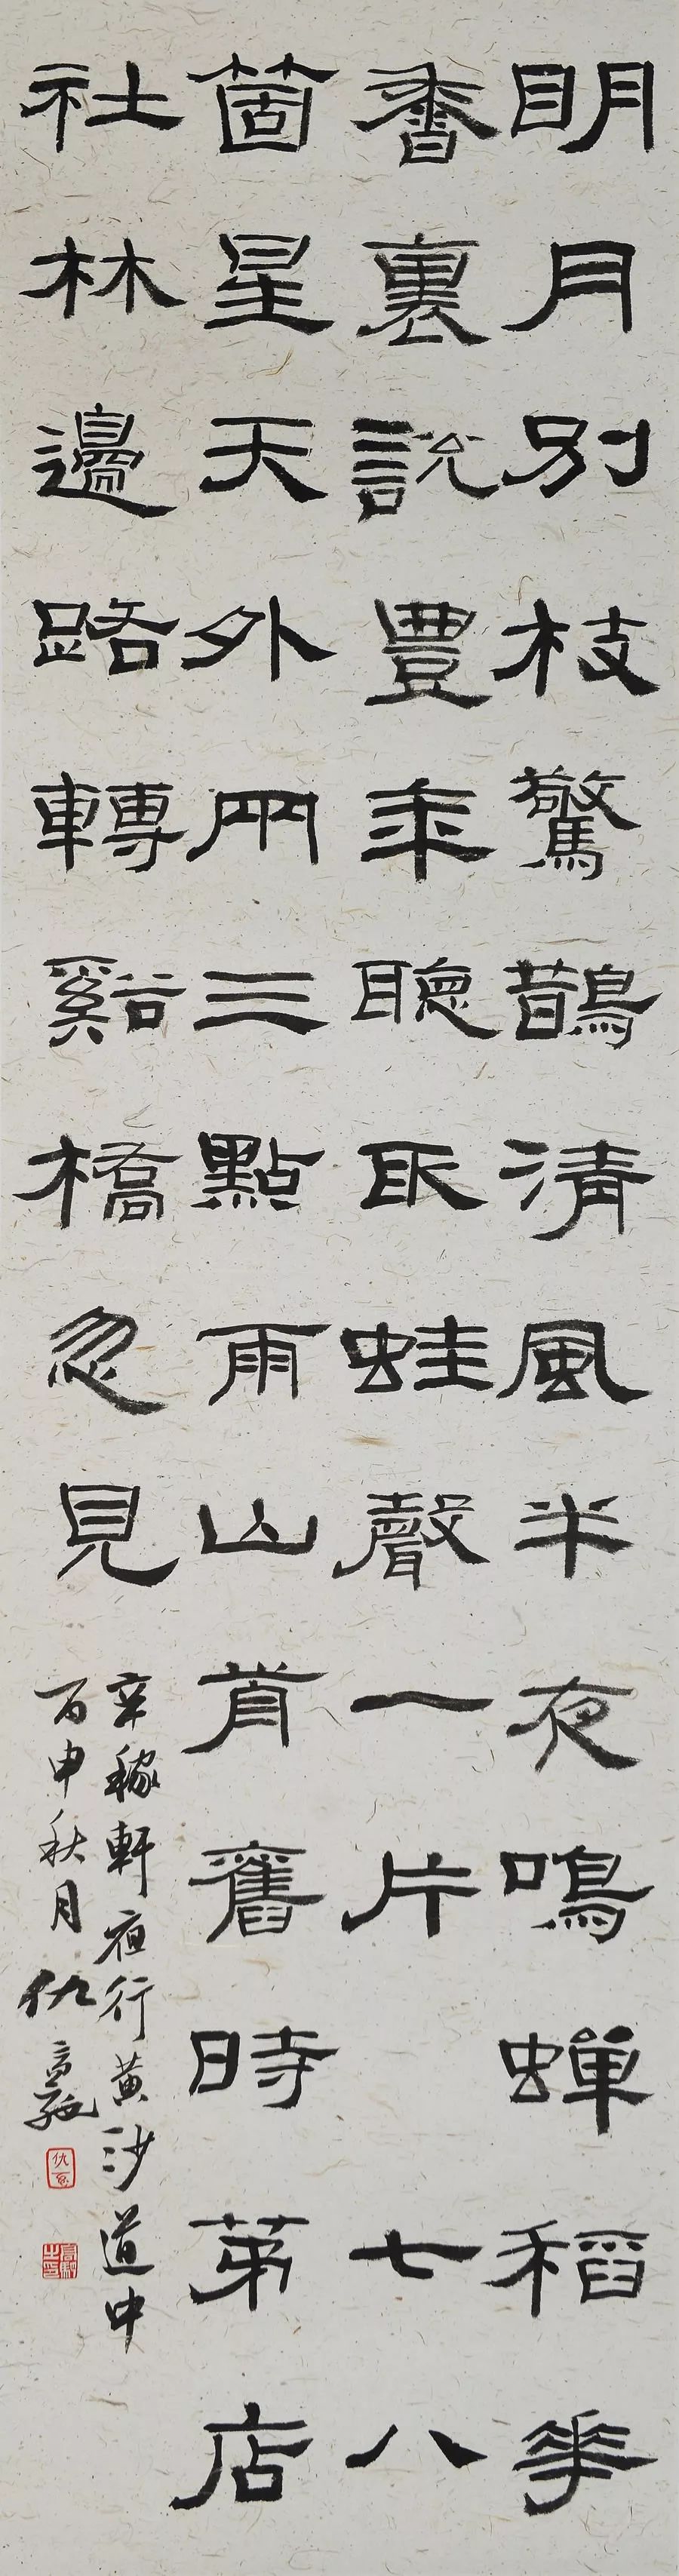 明月別枝驚鵲清風半夜鳴蟬稻華
香裏說豐年聽取蛙聲一片 七八
箇星天外兩三點雨山前舊時茅店
社林邊路轉谿橋忽見
辛稼軒夜行黃沙道中
丙申秋月仇高